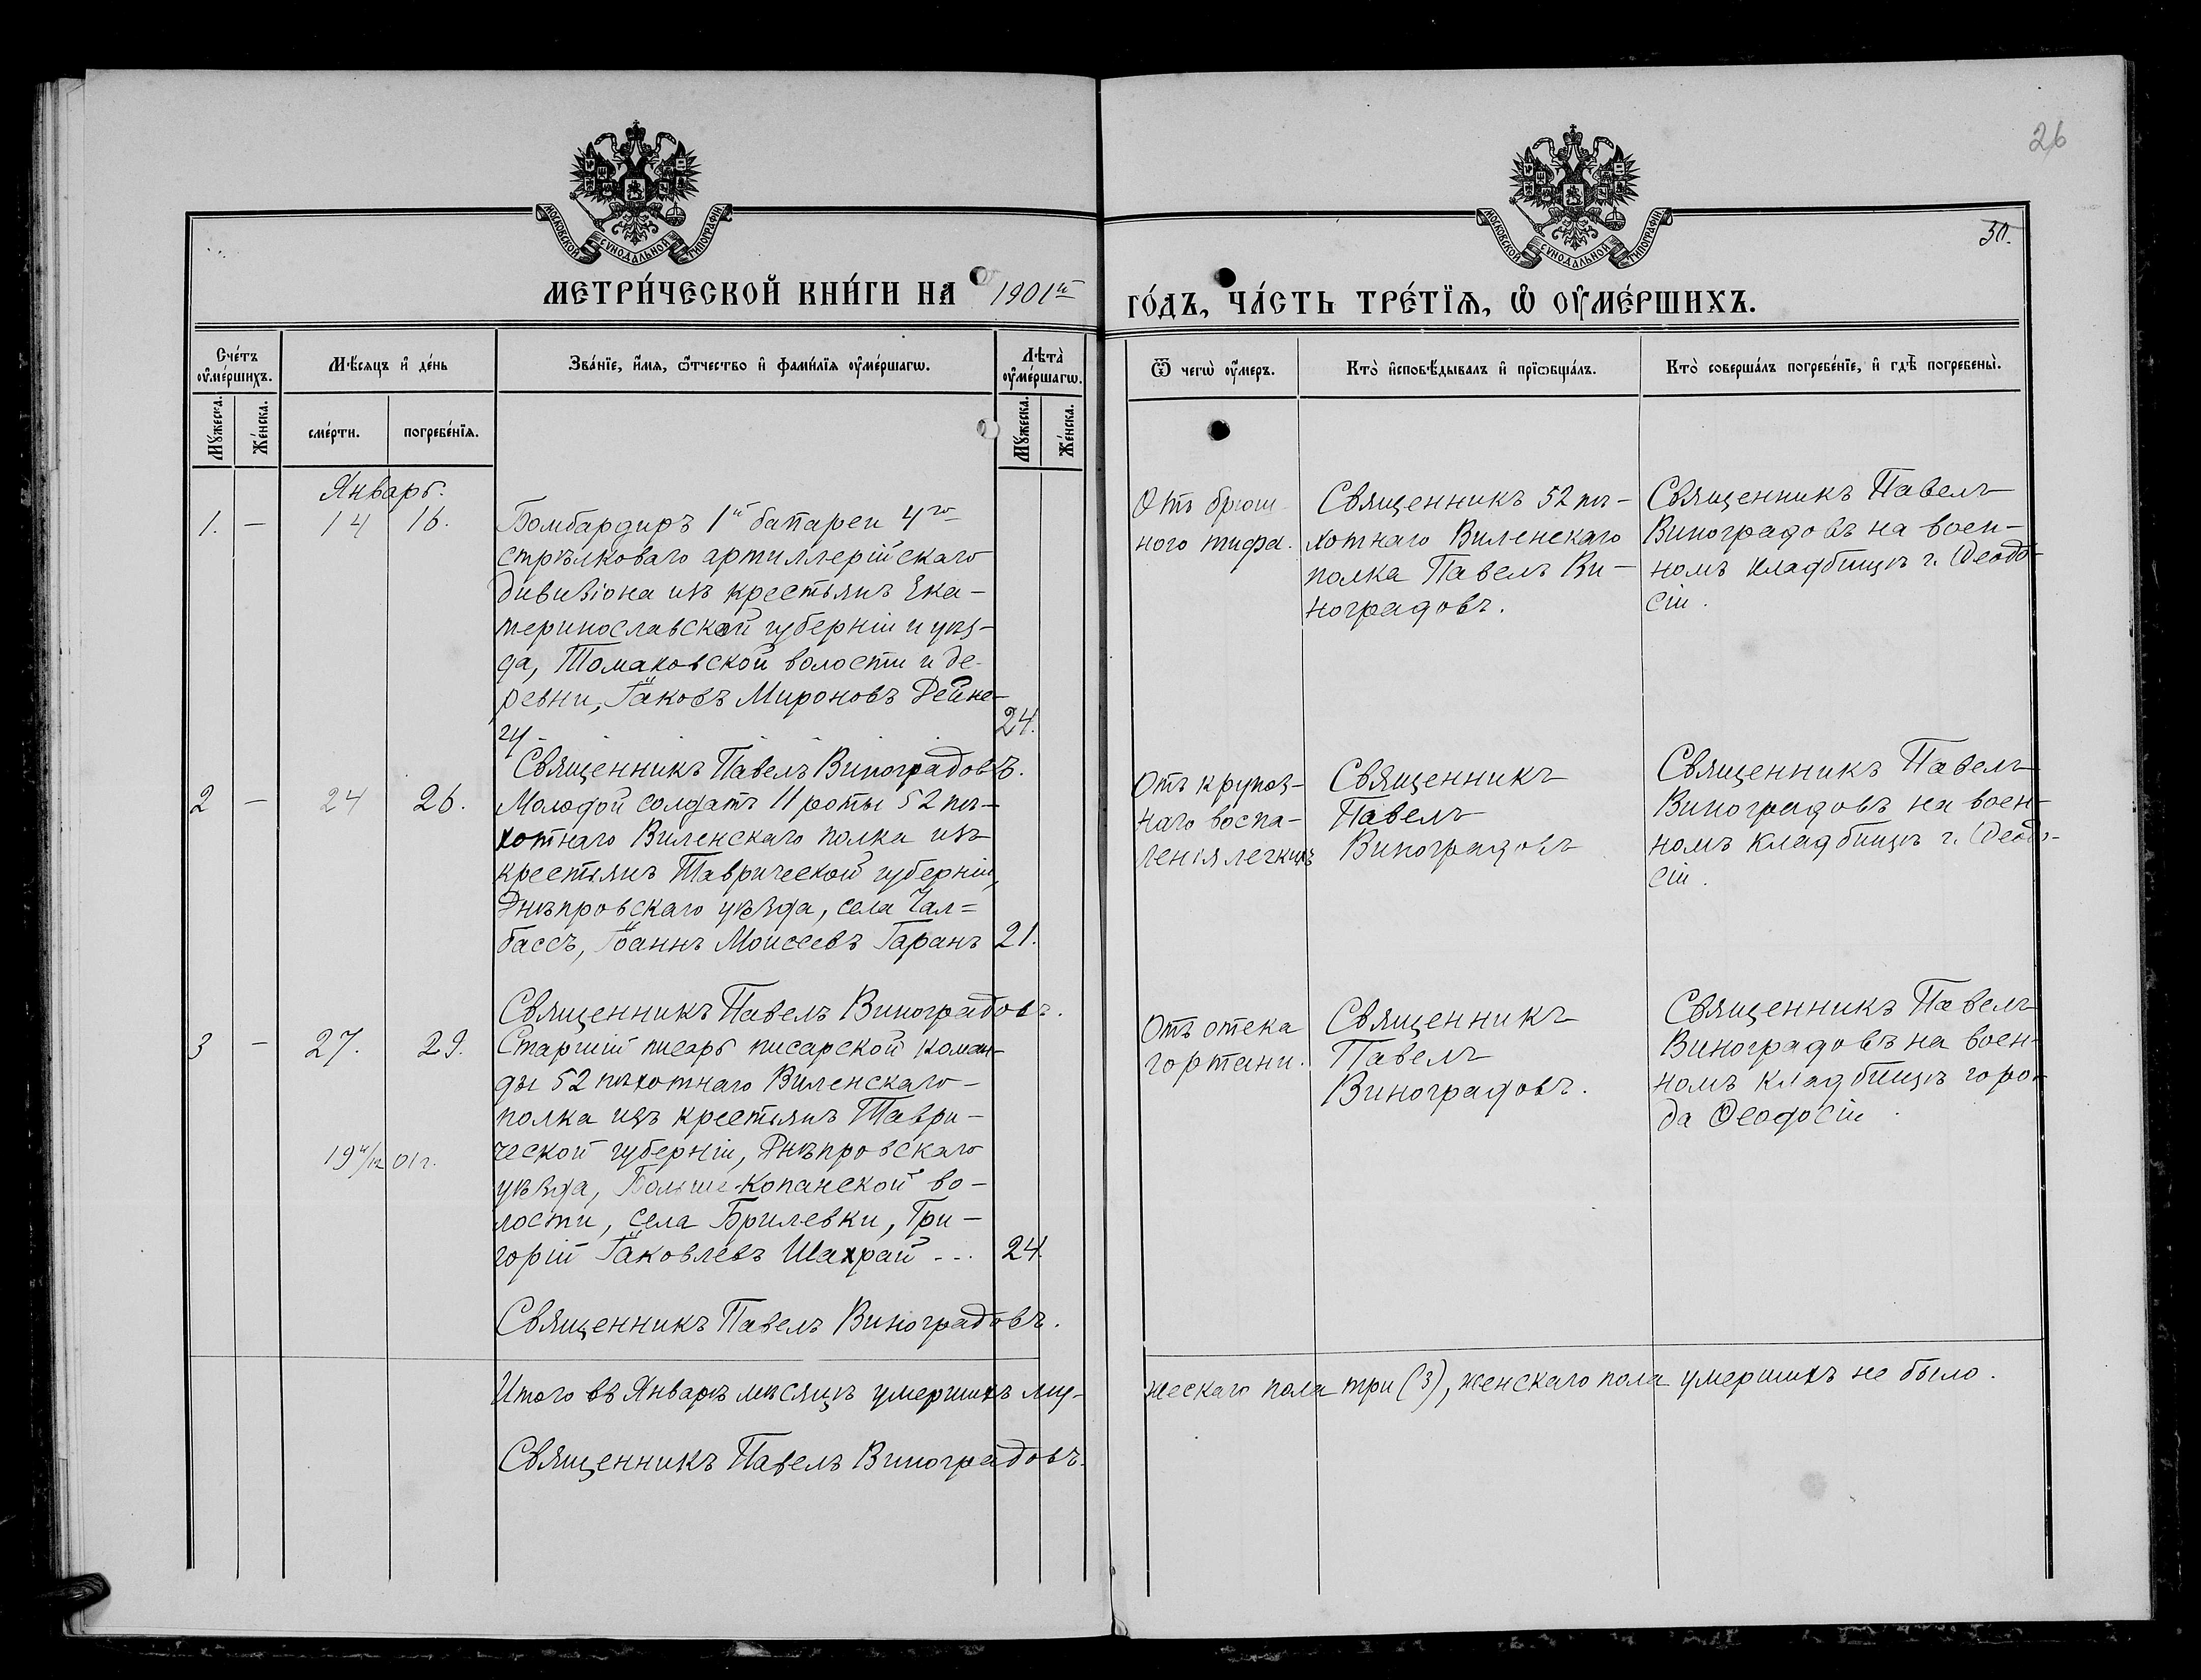 26
50.
МОСКОВСКОЙ СУНОДАЛЬНОЙ ТИПОГРАФІИ
МОСКОВСКОЙ СУНОДАЛЬНОЙ ТИПОГРАФІИ
МЕТРИ́ЧЕСКОЙ КНИ́ГИ НА 1901й
ГО́ДЪ, ЧА́СТЬ ТРЕ́ТЇѦ, Ѡ҆ ОУ҆МЕ́РШИХЪ.
Сче́тъ оу҆ме́ршихъ.
Мꙋ́жеска.
Же́нска.
Мѣ́сяцъ и҆ де́нь
сме́рти.
погребе́нїѧ.
Зва́нїе, и҆́мѧ, ѻ҆́тчество и҆ фами́лїѧ оу҆ме́ршагѡ.
Лѣта̀ оу҆ме́ршагѡ.
Мꙋ́жеска.
Же́нска.
Ѿ чегѡ̀ оу҆́меръ.
Кто̀ и҆сповѣ́дывалъ и҆ прїѡбща́лъ.
Кто̀ соверша́лъ погребе́нїе, и҆ гдѣ̀ погребены̀.
Январь.
1. — 14 16.
Бомбардиръ 1й батареи 4го
стрѣлковаго артиллерійскаго
дивизіона изъ крестьянъ Ека-
теринославской губерніи и уѣз-
да, Томаковской волости и де-
ревни, Іаковъ Мироновъ Дейне-
гу. 24.
Отъ брюш-
ного тифа.
Священникъ 52 пѣ-
хотнаго Виленскаго
полка Павелъ Ви-
ноградовъ.
Священникъ Павелъ
Виноградовъ на воен-
номъ кладбищѣ г. Ѳеодо-
сіи.
Священникъ Павелъ Виноградовъ.
2 — 24 26.
Молодой солдатъ 11 роты 52 пѣ-
хотнаго Виленскаго полка изъ
крестьянъ Таврической губерніи,
Днѣпровскаго уѣзда, села Чал=
бассъ, Іоаннъ Моисеевъ Гаранъ 21.
Отъ крупоз-
наго воспа-
ленія легкихъ
Священникъ
Павелъ
Виноградовъ
Священникъ Павелъ
Виноградовъ на воен-
номъ кладбищѣ г. Ѳеодо-
сіи.
Священникъ Павелъ Виноградовъ.
3 — 27. 29.
Старшій писарь писарской коман-
ды 52 пѣхотнаго Виленскаго
полка изъ крестьянъ Таври-
ческой губерніи, Днѣпровскаго
уѣзда, Больше-Копанской во-
лости, села Брилевки, Гри-
горій Іаковлевъ Шахрай ... 24.
19 4/12 01 г.
Отъ отека
гортани.
Священникъ
Павелъ
Виноградовъ.
Священникъ Павелъ
Виноградовъ на воен-
номъ кладбищѣ горо-
да Ѳеодосіи.
Священникъ Павелъ Виноградовъ.
Итого въ Январѣ мѣсяцѣ умершихъ му-
жескаго пола три (3), женскаго пола умершихъ не было.
Священникъ Павелъ Виноградовъ.